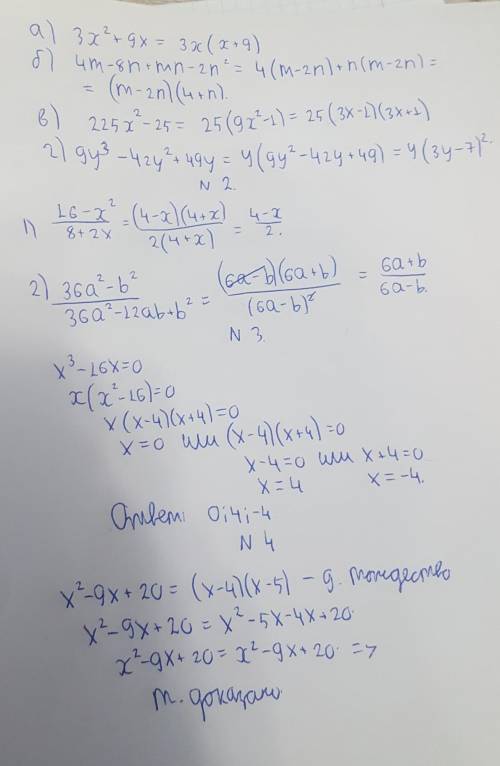 а) 3x²+9x = 3x(x+9)
б) 4m-8n+mn-2n² = 4(m-2n)+n(m-2n) =
= (m-2n)(4+n).
в) 225x²-25 = 25(9x²-1) = 25(3x-1)(3x+1)
г) 9y³-42y²+49y = y(9y²-42y+49) = y(3y-7)².
N 2.
1) (16-x²)/(8+2x) = ((4-x)(4+x))/(2(4+x)) = (4-x)/2.
2) (36a²-b²)/(36a²-12ab+b²) = ((6a-b)(6a+b))/((6a-b)²) = (6a+b)/(6a-b).
N 3.
x³-16x=0
x(x²-16)=0
x(x-4)(x+4)=0
x=0 или (x-4)(x+4)=0
x-4=0 или x+4=0
x=4 x=-4.
Ответ: 0;4;-4
N 4
x²-9x+20 = (x-4)(x-5) - д. тождество
x²-9x+20 = x²-5x-4x+20.
x²-9x+20 = x²-9x+20. =>
т. доказано.